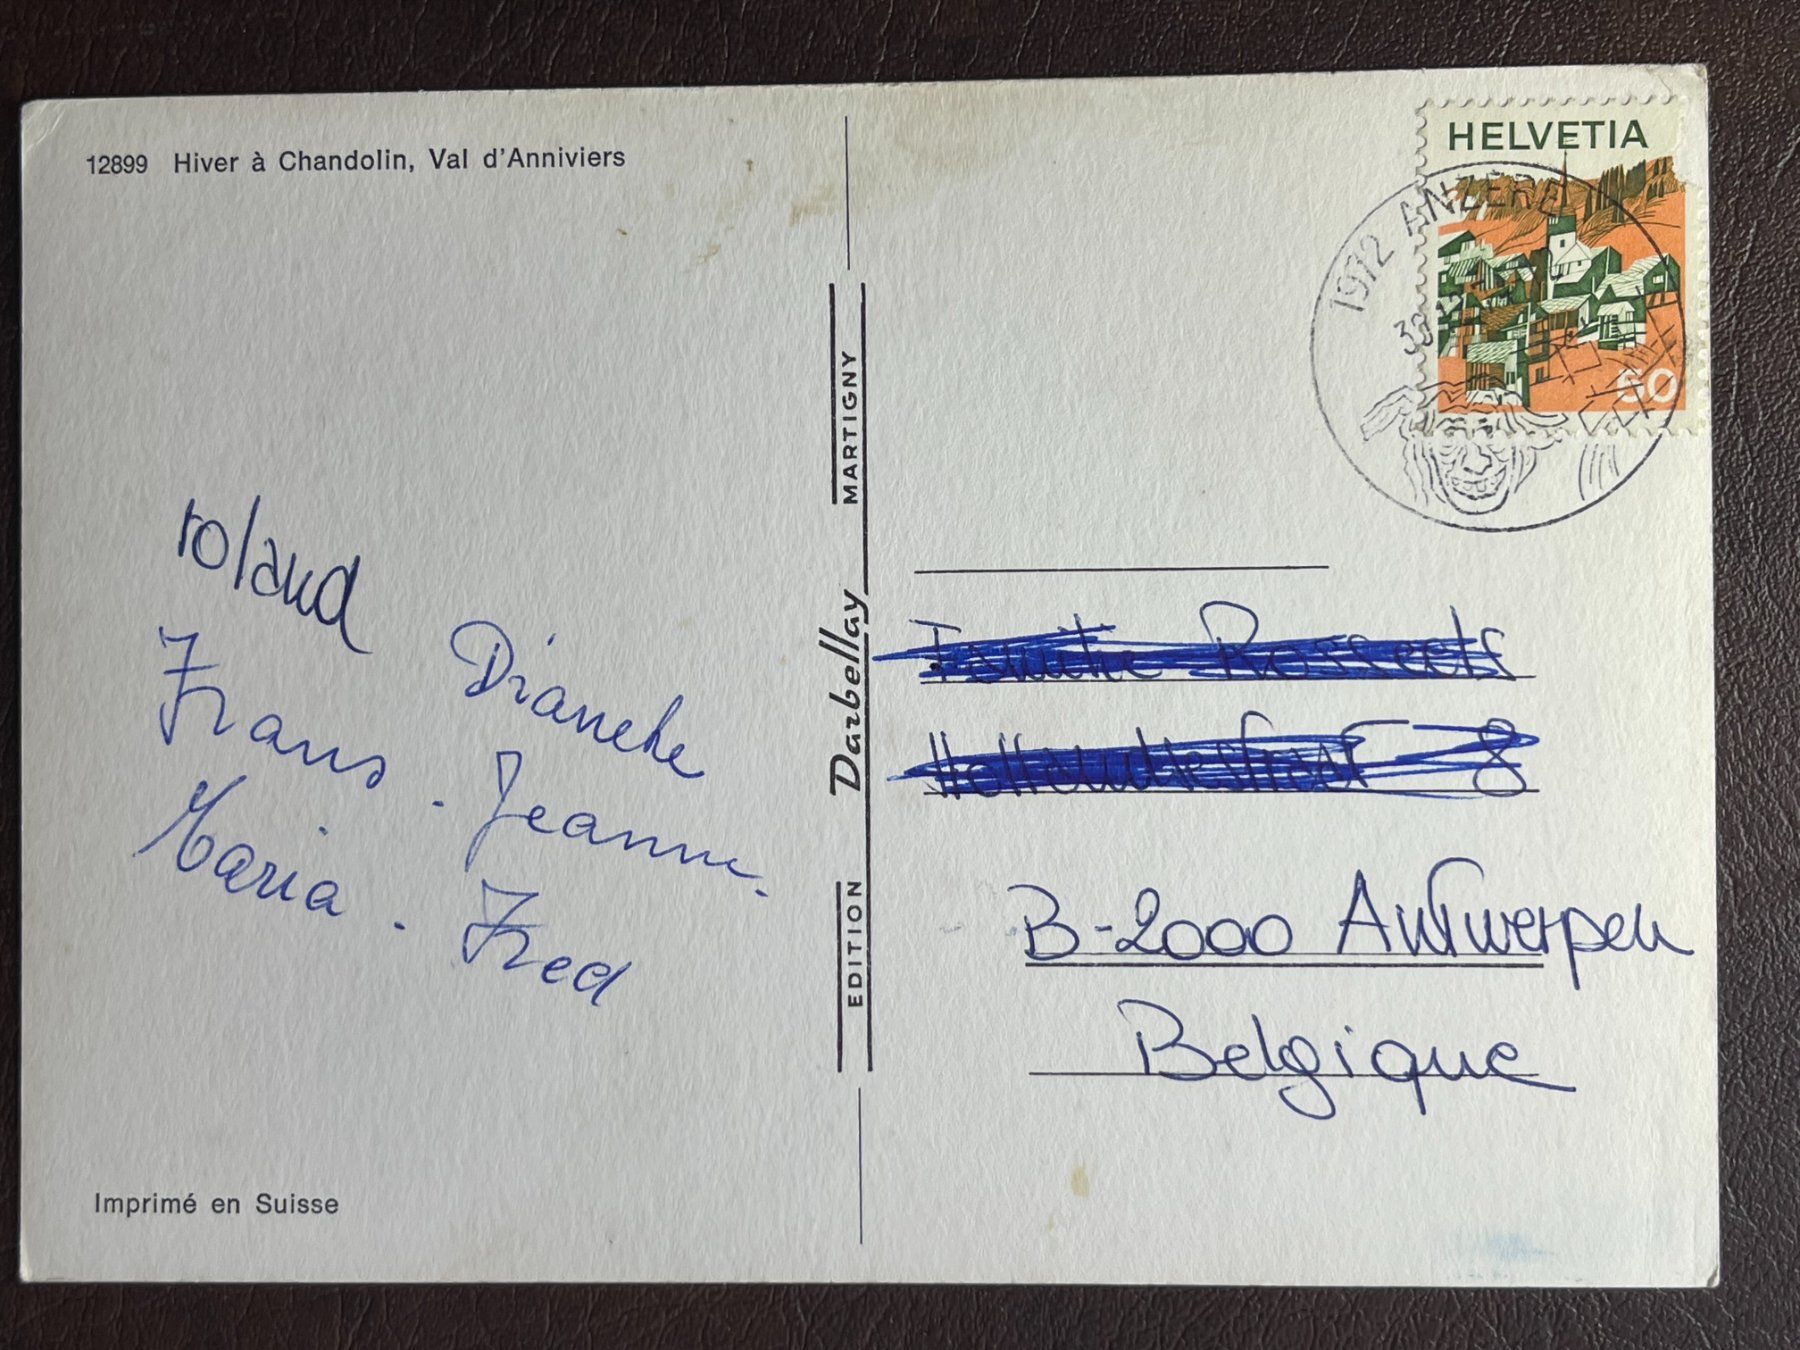 12899 Hiver à Chandolin, Val d'Anniviers
roland Dianeke
Frans. Jeanne.
Maria. Fred
Imprimé en Suisse
EDITION Darbellay MARTIGNY
HELVETIA
1972 ANZÈRE
50
8
B-2000 Antwerpen
Belgique